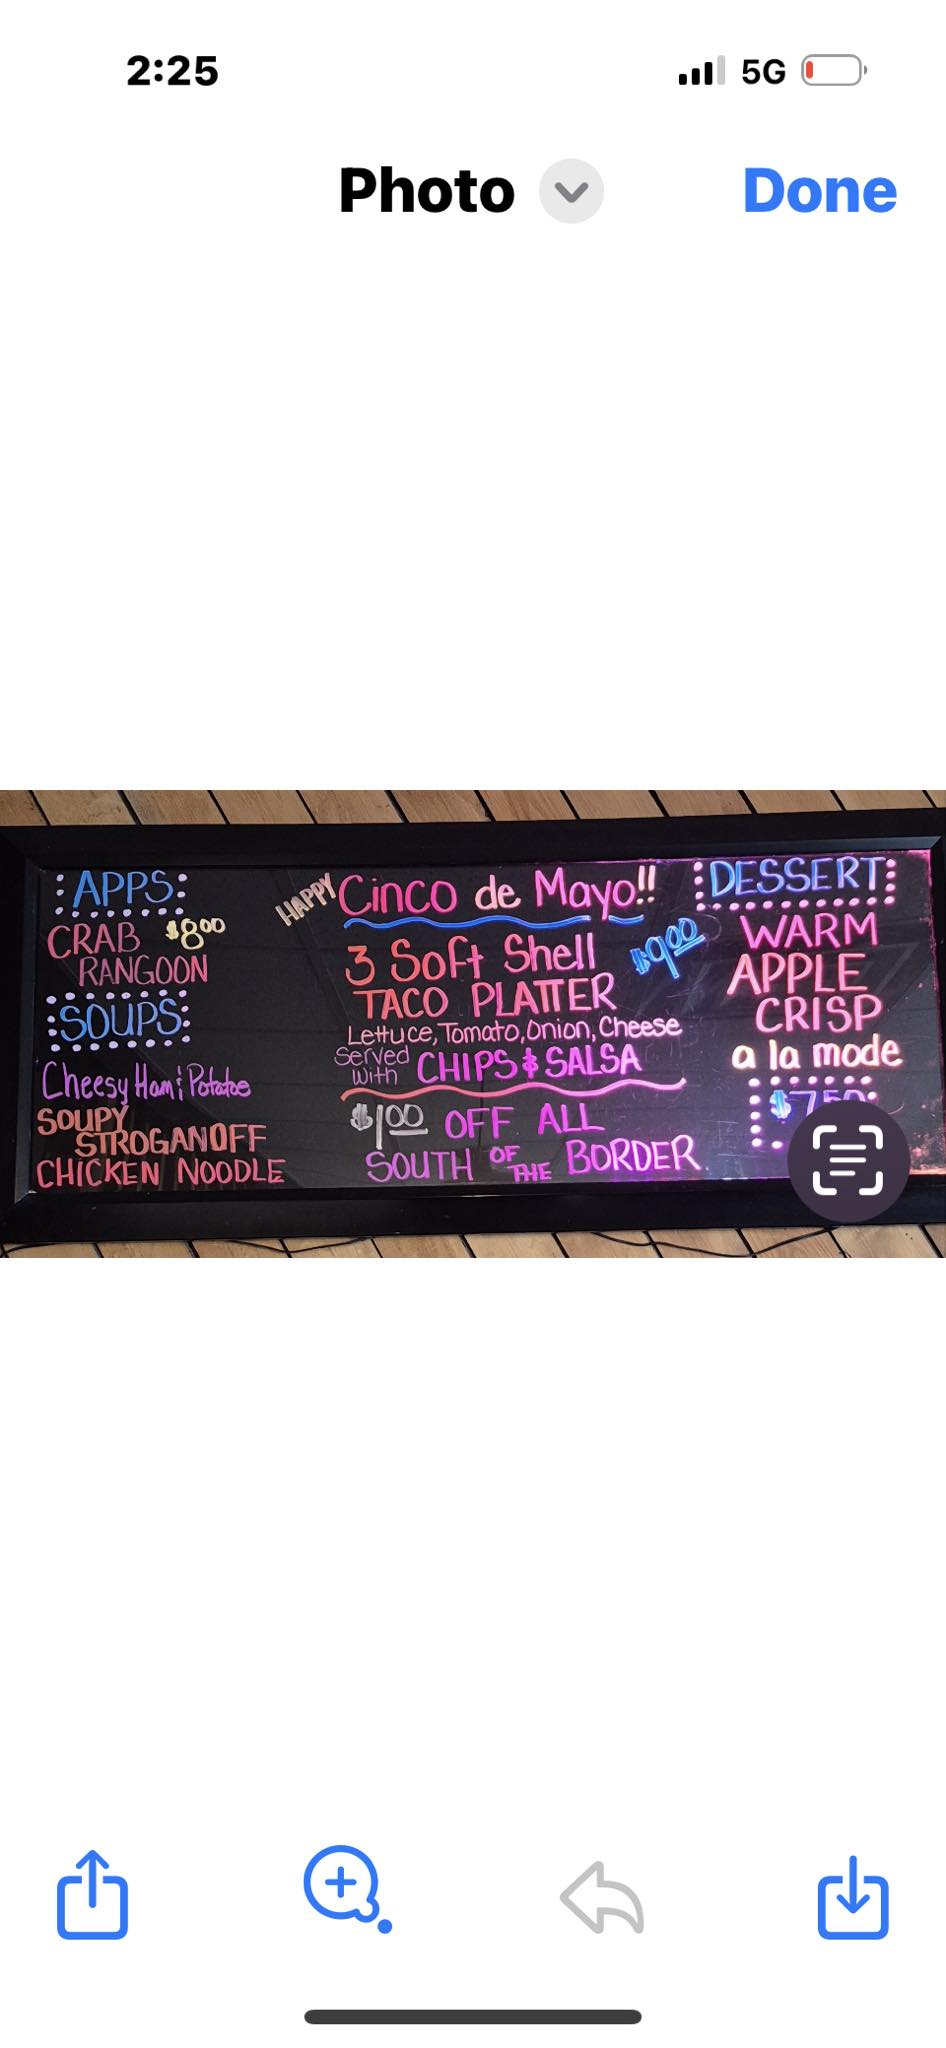 2:25
5G
Photo
Done
APPS
CRAB $8.00
RANGOON
SOUPS
Cheesy Ham & Potatoe
SOUPY
STROGANOFF
CHICKEN NOODLE
HAPPY
Cinco de Mayo!!
3 Soft Shell
TACO PLATTER
$9.00
Lettuce, Tomato, Onion, Cheese
Served
with CHIPS & SALSA
$1.00 OFF ALL
SOUTH OF THE BORDER
DESSERT
WARM
APPLE
CRISP
a la mode
$7.50